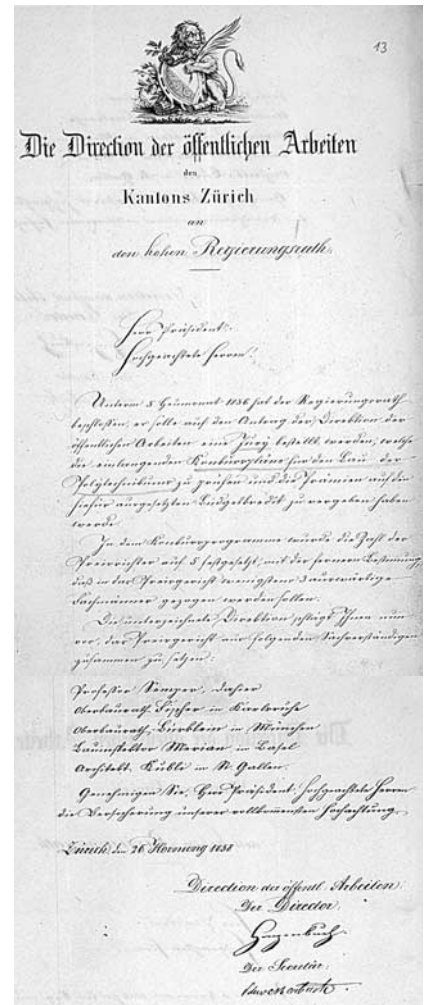 13
Die Direction der öffentlichen Arbeiten
des
Kantons Zürich
an
den hohen Regierungsrath.
Herr Präsident!
Hochgeachtete Herren!
Unterm 5 Heumonat 1856 hat der Regierungsrath
beschlossen, es solle auf den Antrag der Direktion der
öffentlichen Arbeiten eine Jury bestellt werden, welche
die einlangenden Konkurspläne für den Bau des
Polytechnikums zu prüfen und die Prämien auf den
hiefür ausgesetzten Budgetkredit zu vergeben haben
werde.
In dem Konkursprogramme wurde die Zahl der
Preisrichter auf 5 festgesetzt, mit der fernern Bestimmung,
daß in das Preisgericht wenigstens 3 auswärtige
Fachmänner gezogen werden sollen.
Die unterzeichnete Direktion schlägt Ihnen nun
vor, das Preisgericht aus folgenden Sachverständigen
zusammen zu setzen:
Professor Semper, dahier
Oberbaurath Fischer in Karlsruhe
Oberbaurath Bürklein in München
Bauinspektor Merian in Basel
Architekt Kubli in St. Gallen.
Genehmigen Sie, Herr Präsident, Hochgeachtete Herren
die Versicherung unserer vollkommensten Hochachtung.
Zürich, den 26 Hornung 1858
Direction der öffentl. Arbeiten:
Der Director,
Hagenbuch.
Der Secretär: